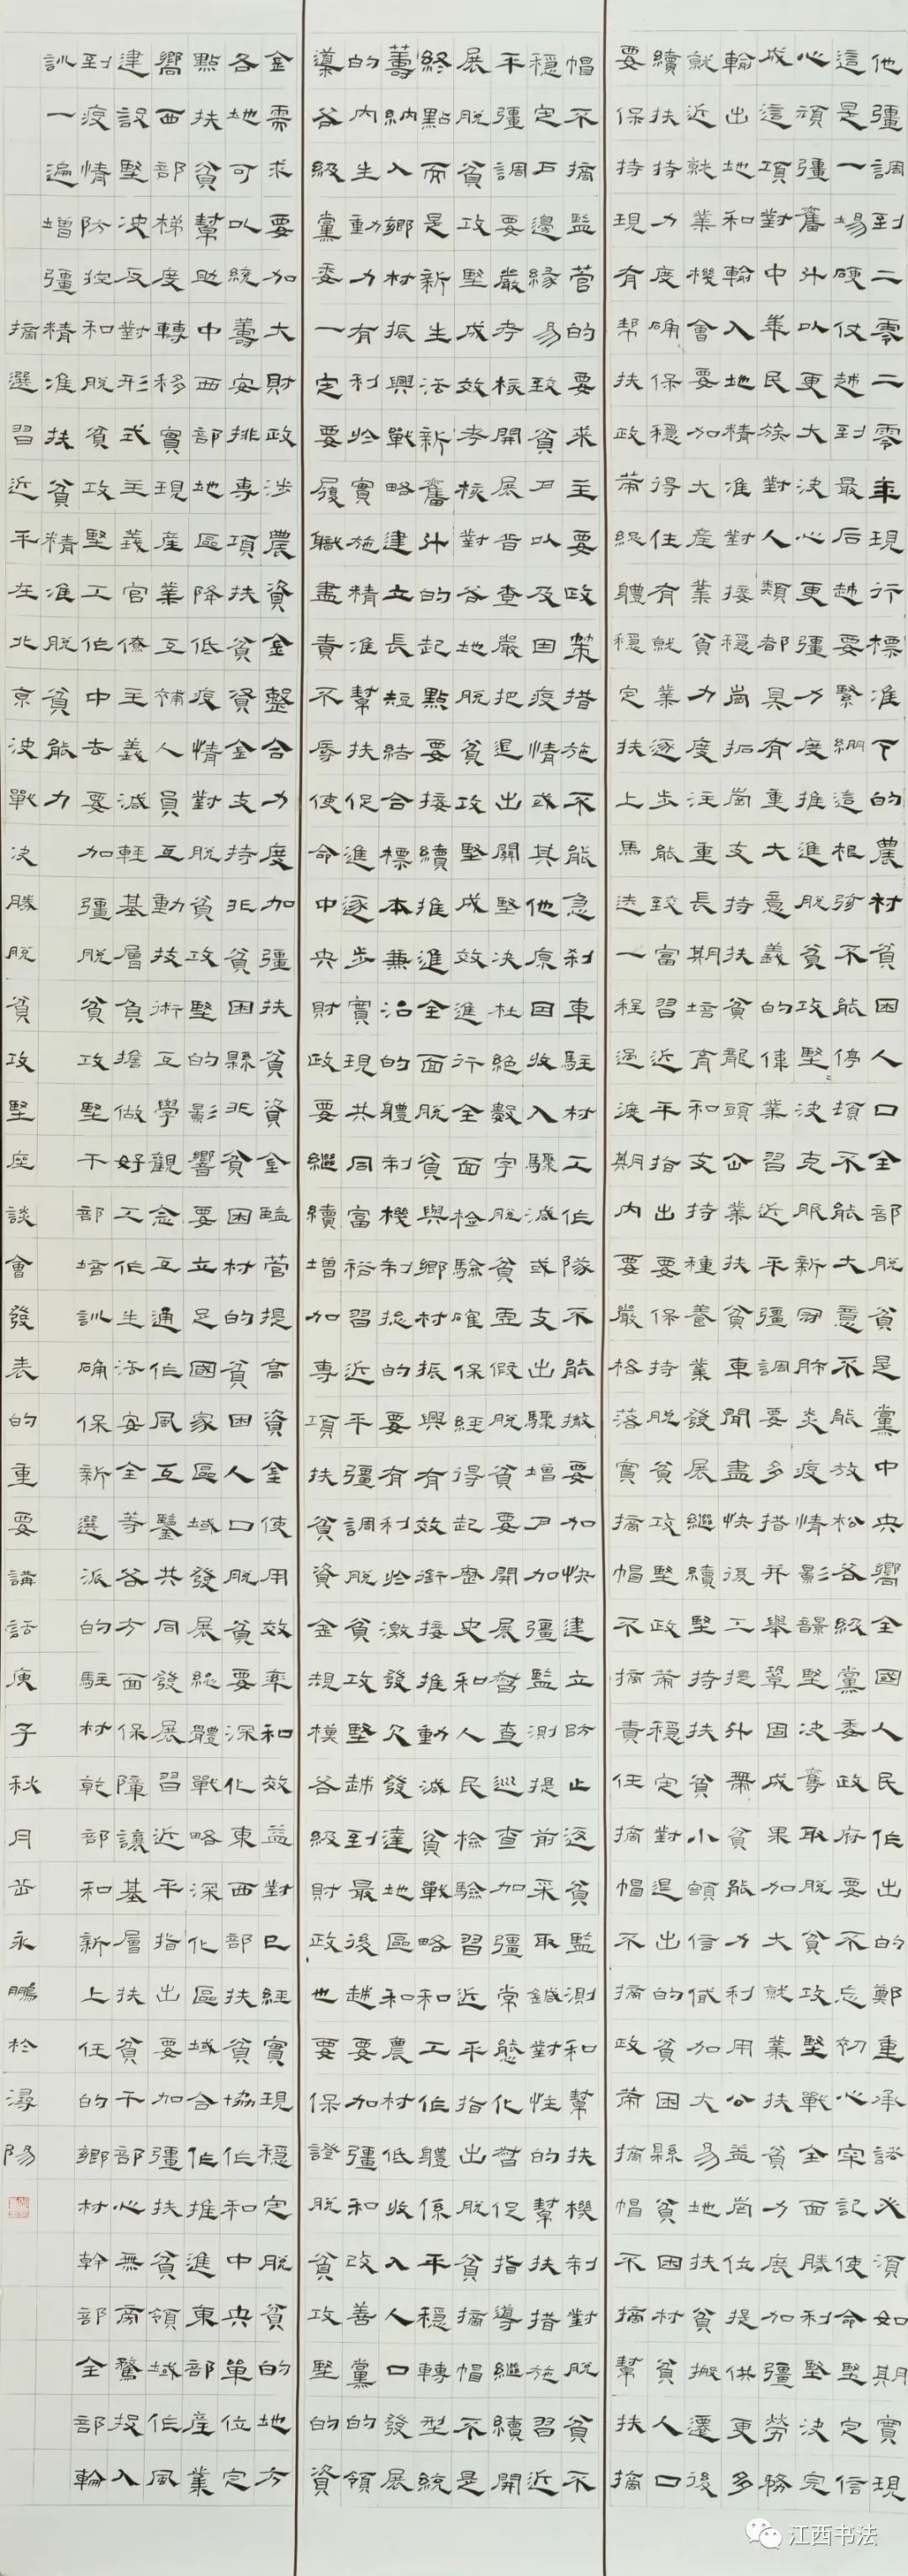 他彊調到二零二零年現行標准下的農村貧困人口全部脱貧是黨中央嚮全國人民作出的鄭重承諾必須如期實現
這是一場硬仗越到最后越要緊綳這根弦不能停頓不能大意不能放松各級黨委政府要不忘初心牢記使命堅定信
心頑彊奮斗以更大決心更彊力度推進脱貧攻堅決克服新冠肺炎疫情影響堅決奪取脱貧攻堅戰全面勝利堅決完
成這項對中華民族對人類都具有重大意義的偉業習近平彊調要多措并舉鞏固成果加大就業扶貧力度加彊勞務
輸出地和輸入地精准對接穩崗拓崗支持扶貧龍頭企業扶貧車間盡快復工提升帶貧能力利用公益崗位提供更多
就近就業機會要加大産業貧力度注重長期培育和支持種養業發展繼續堅持扶貧小額信貸加大易地扶貧搬遷後
續扶持力度確保穩得住有就業逐步能致富習近平指出要保持脱貧攻堅政策穩定對退出的貧困縣貧困村貧困人口
要保持現有帮扶政策總體穩定扶上馬送一程過渡期内要嚴格落實摘帽不摘責任摘帽不摘政策摘帽不摘幫扶摘
帽不摘監管的要求主要政策措施不能急刹車駐村工作隊不能撤要加快建立防止返貧監測和幫扶機制對脱貧不
穩定戶邊緣易致貧戶以及因疫情或其他原因收入驟減或支出驟增戶加彊監測提前采取鍼對性的幫扶措施習近
平彊調要嚴考核開展普查嚴把退出關堅決杜絶數字脱貧虚假脱貧要開展督查巡查加彊常態化督促指導繼續開
展脱貧攻堅成效考核對各地脱貧攻堅成效進行全面檢驗確保經得起歷史和人民檢驗習近平指出脱貧摘帽不是
終點而是新生活新奮斗的起點要接續推進全面脱貧與鄉村振興有效銜接推動減貧戰略和工作體係平穩轉型統
籌納入鄉村振興戰略建立長短結合標本兼治的體制機制總的要有利於激發欠發達地區和農村低收入人口發展
的内生動力有利於實施精准幫扶促進逐步實現共同富裕習近平彊調脱貧攻堅越到最後越要加彊和改善黨的領
導各級黨委一定要履職盡責不辱使命中央財政要繼續增加專項扶貧資金規模各級財政也要保證脱貧攻堅的資
金需求要加大財政涉農資金整合力度加彊扶貧資金監管提高資金使用效率和效益對已經實現穩定脱貧的地方
各地可以統籌安排專項扶貧資金支持非貧困縣非貧困村的貧困人口脱貧要深化東西部扶貧協作和中央單位定
點扶貧幫助中西部地區降低疫情對脱貧攻堅的影響要立足國家區域發展總體戰略深化區域合作推進東部産業
嚮西部梯度轉移實現産業互補人員互動技術互學觀念互通作風互鑒共同發展習近平指出要加彊扶貧領域作風
建設堅決反對形式主義官僚主義減輕基層負擔做好工作生活安全等各方面保障讓基層扶貧干部心無旁騖投入
到疫情防控和脱貧攻堅工作中去要加彊脱貧攻堅干部培訓確保新選派的駐村乾部和新上任的鄉村幹部全部輪
訓一遍增彊精准扶貧精准脱貧能力
摘選習近平在北京決戰決勝脱貧攻堅座談會發表的重要講話庚子秋月岳永鵬於潯陽
江西书法